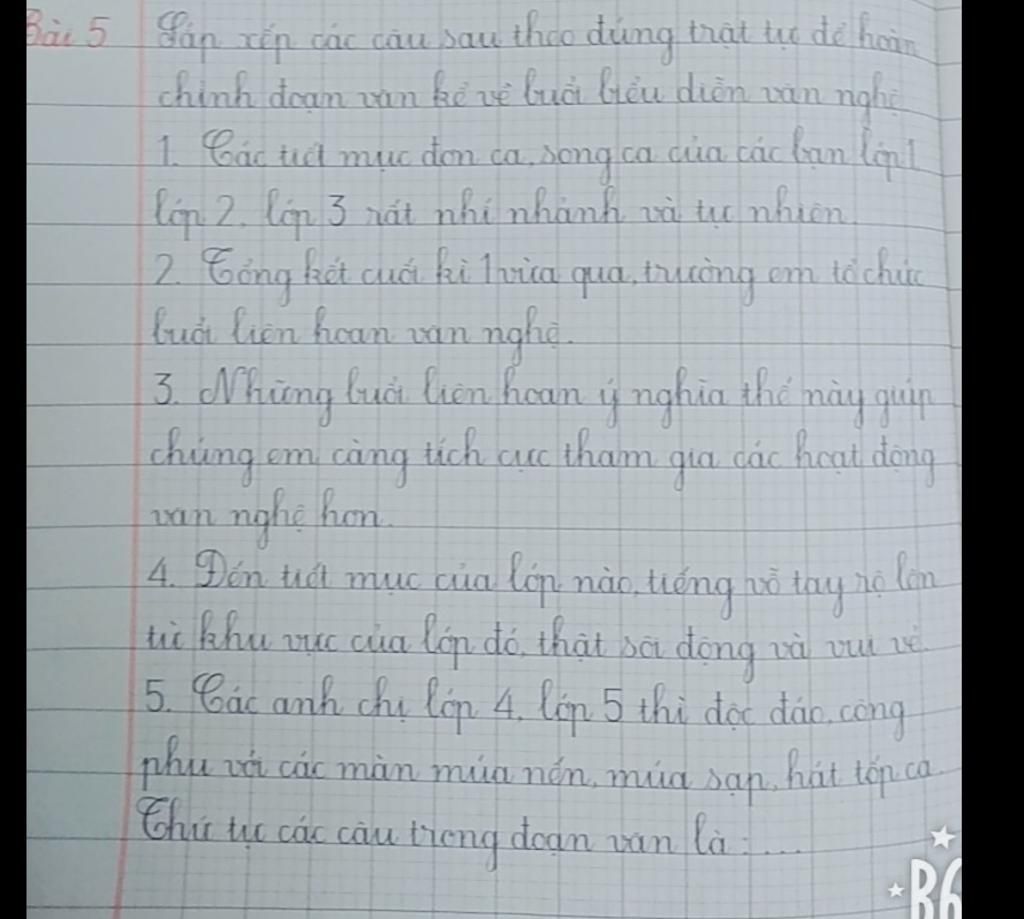 Bài 5 Sắp xếp các câu sau theo đúng trật tự để hoàn
chỉnh đoạn văn kể về buổi biểu diễn văn nghệ
1. Các tiết mục đơn ca, song ca của các bạn lớp 1
lớp 2, lớp 3 rất nhí nhảnh và tự nhiên.
2. Tổng kết cuối kì 1 vừa qua, trường em tổ chức
buổi liên hoan văn nghệ.
3. Những buổi liên hoan ý nghĩa thế này giúp
chúng em càng tích cực tham gia các hoạt động
văn nghệ hơn.
4. Đến tiết mục của lớp nào, tiếng vỗ tay rộ lên
từ khu vực của lớp đó, thật sôi động và vui vẻ.
5. Các anh chị lớp 4, lớp 5 thì độc đáo, công
phu với các màn múa nón, múa sạp, hát tốp ca.
Thứ tự các câu trong đoạn văn là:....
B6